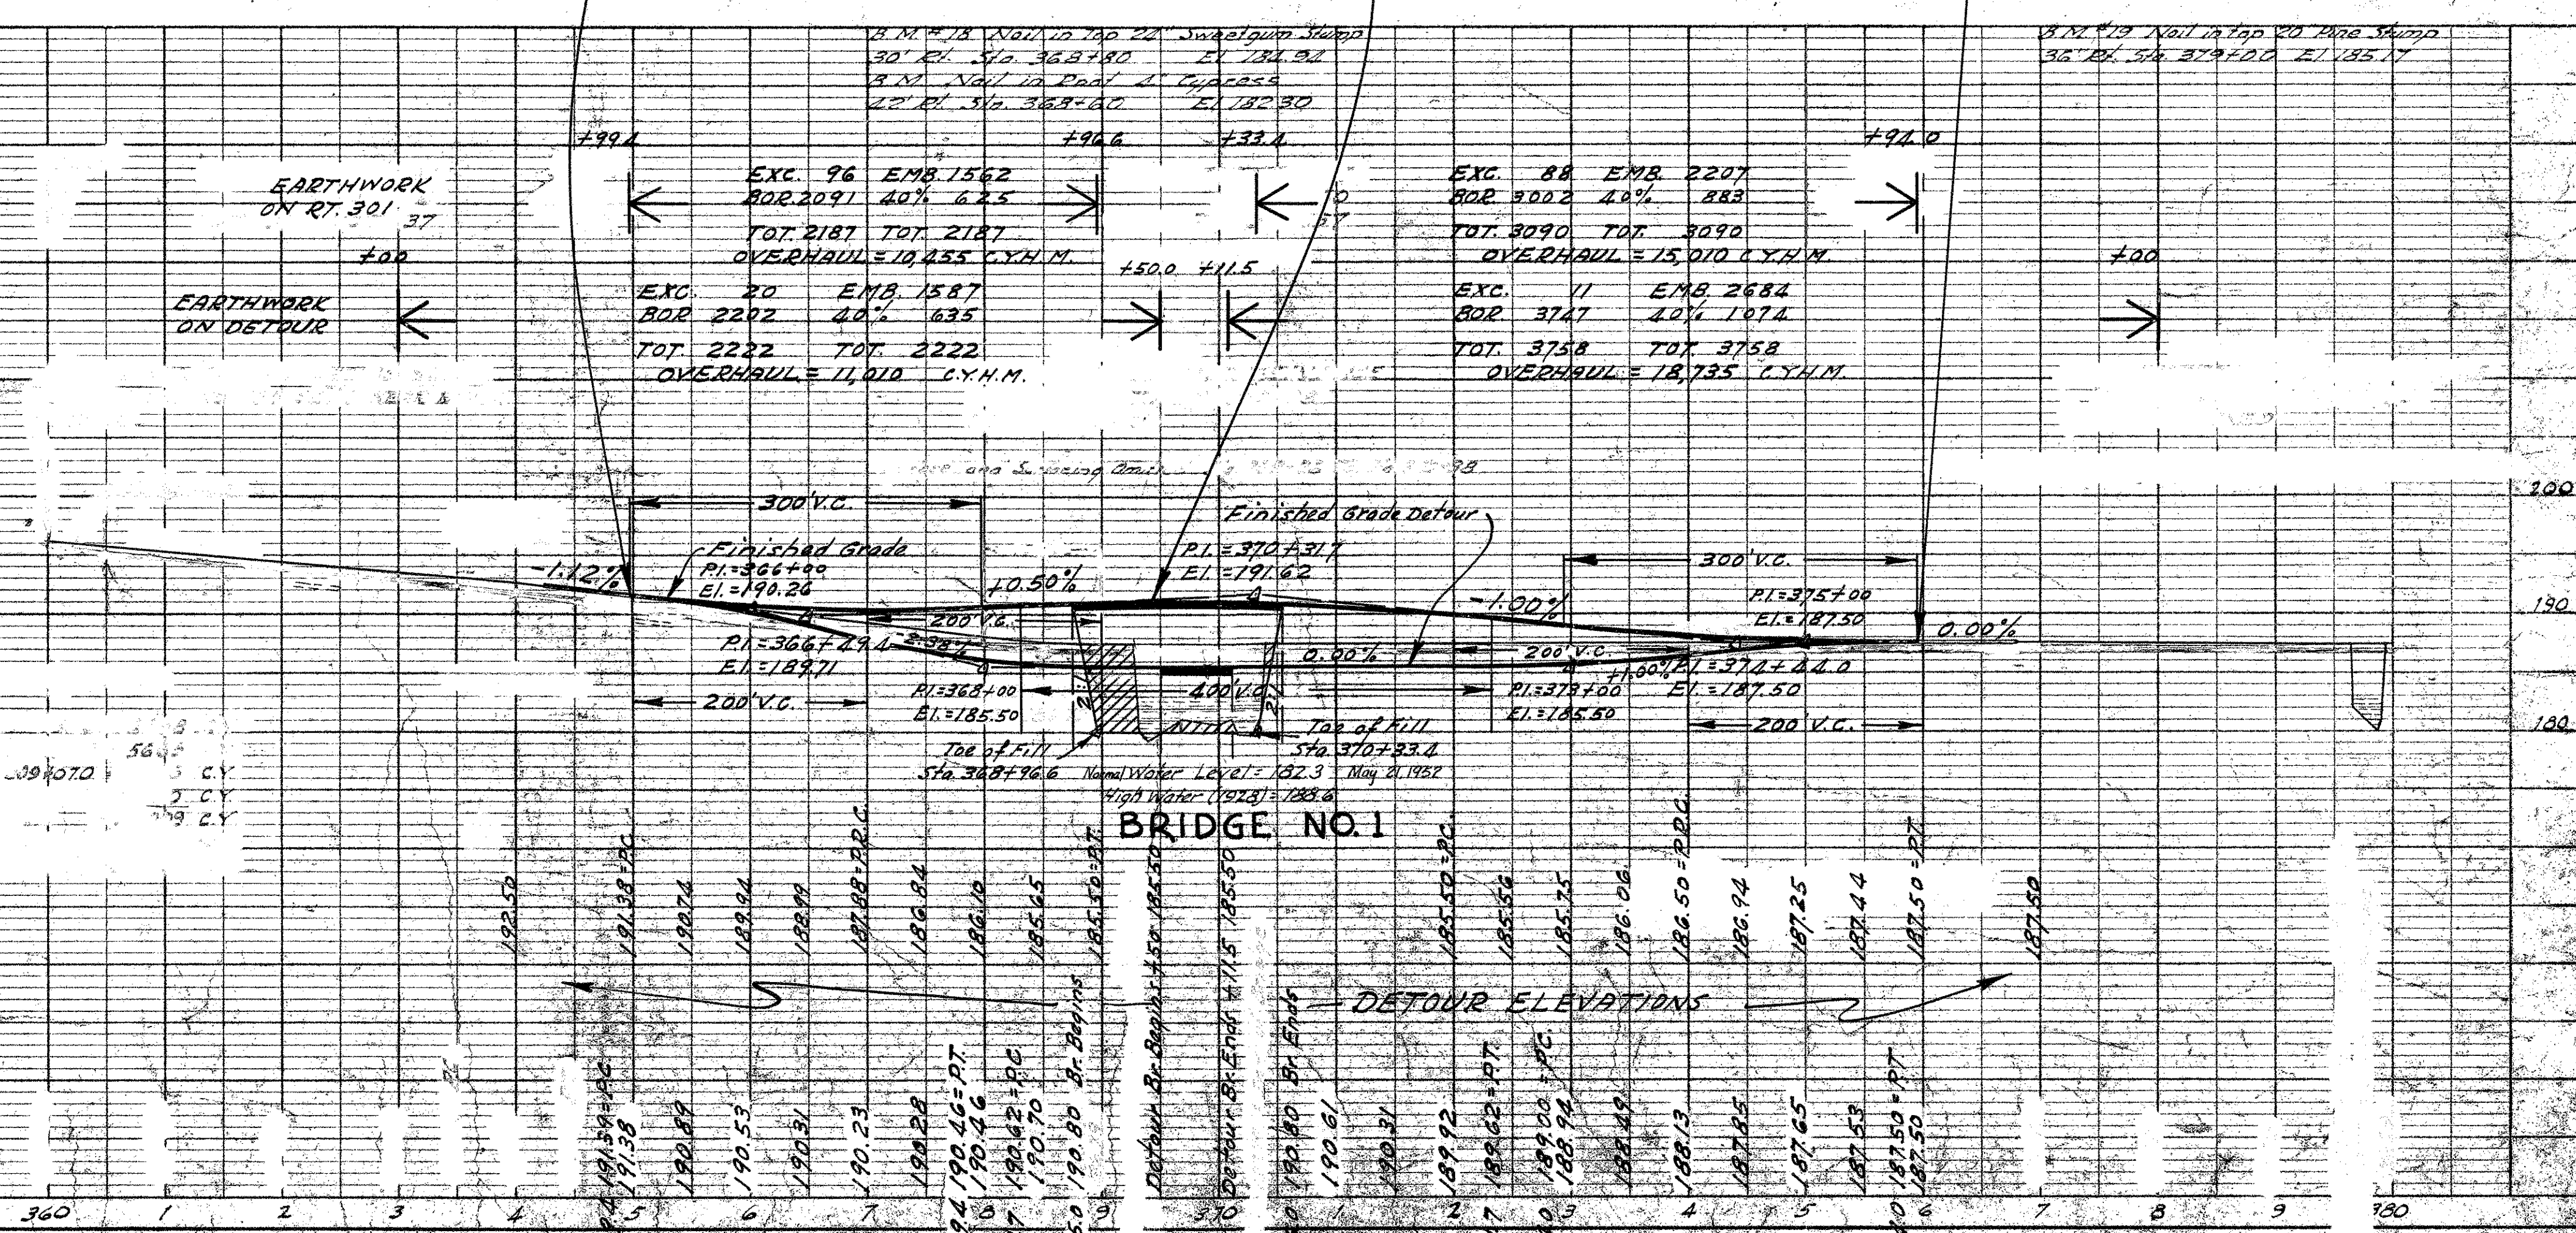 B.M. #18 Nail in Top 24" Sweetgum Stump
30' Rt. Sta. 368+80 El. 184.94
B.M. Nail in Root 4" Cypress
42' Rt. Sta. 368+60 El. 182.30
B.M. #19 Nail in top 20" Pine Stump
36' Rt. Sta. 379+00 El. 185.17
+99.4
+96.6
+33.4
+94.0
EARTHWORK
ON RT. 301
37
EXC. 96 EMB. 1562
BOR. 2091 40% 625
TOT. 2187 TOT. 2187
OVERHAUL = 10,455 C.Y.H.M.
EXC. 88 EMB. 2207
BOR. 3002 40% 883
TOT. 3090 TOT. 3090
OVERHAUL = 15,010 C.Y.H.M.
+00
+50.0 +11.5
+00
EARTHWORK
ON DETOUR
EXC. 20 EMB. 1587
BOR. 2202 40% 635
TOT. 2222 TOT. 2222
OVERHAUL = 11,010 C.Y.H.M.
EXC. 11 EMB. 2684
BOR. 3747 40% 1074
TOT. 3758 TOT. 3758
OVERHAUL = 18,735 C.Y.H.M.
200
300' V.C.
Finished Grade Detour
Finished Grade
P.I. = 366+00
El. = 190.26
-1.12%
+0.50%
P.I. = 370+31.7
El. = 191.62
300' V.C.
-1.00%
P.I. = 375+00
El. = 187.50
0.00%
190
200' V.C.
P.I. = 366+49.4
El. = 189.71
-2.38%
0.00%
200' V.C.
+1.00%
P.I. = 374+44.0
El. = 187.50
200' V.C.
P.I. = 368+00
El. = 185.50
2:1
400' V.C.
2:1
P.I. = 373+00
El. = 185.50
200' V.C.
180
Toe of Fill
Sta. 368+96.6
Toe of Fill
Sta. 370+33.4
Normal Water Level = 182.3 May 21, 1952
High Water (1928) = 188.6
C.Y.
C.Y.
C.Y.
BRIDGE NO. 1
192.50
191.38 = P.C.
190.74
189.94
188.99
187.88 = P.R.C.
186.84
186.10
185.65
185.50 = P.T.
Detour Br. Begins +50 185.50
Detour Br. Ends +11.5 185.50
185.50 = P.C.
185.56
185.75
186.06
186.50 = P.R.C.
186.94
187.25
187.44
187.50 = P.T.
187.50
DETOUR ELEVATIONS
191.39 = P.C.
191.38
190.89
190.53
190.31
190.23
190.28
190.46 = P.T.
190.46
190.62 = P.C.
190.70
190.80 Br. Begins
190.80 Br. Ends
190.61
190.31
189.92
189.62 = P.T.
189.00 = P.C.
188.94
188.49
188.13
187.85
187.65
187.53
187.50 = P.T.
187.50
360 1 2 3 4 5 6 7 8 9 370 1 2 3 4 5 6 7 8 9 380